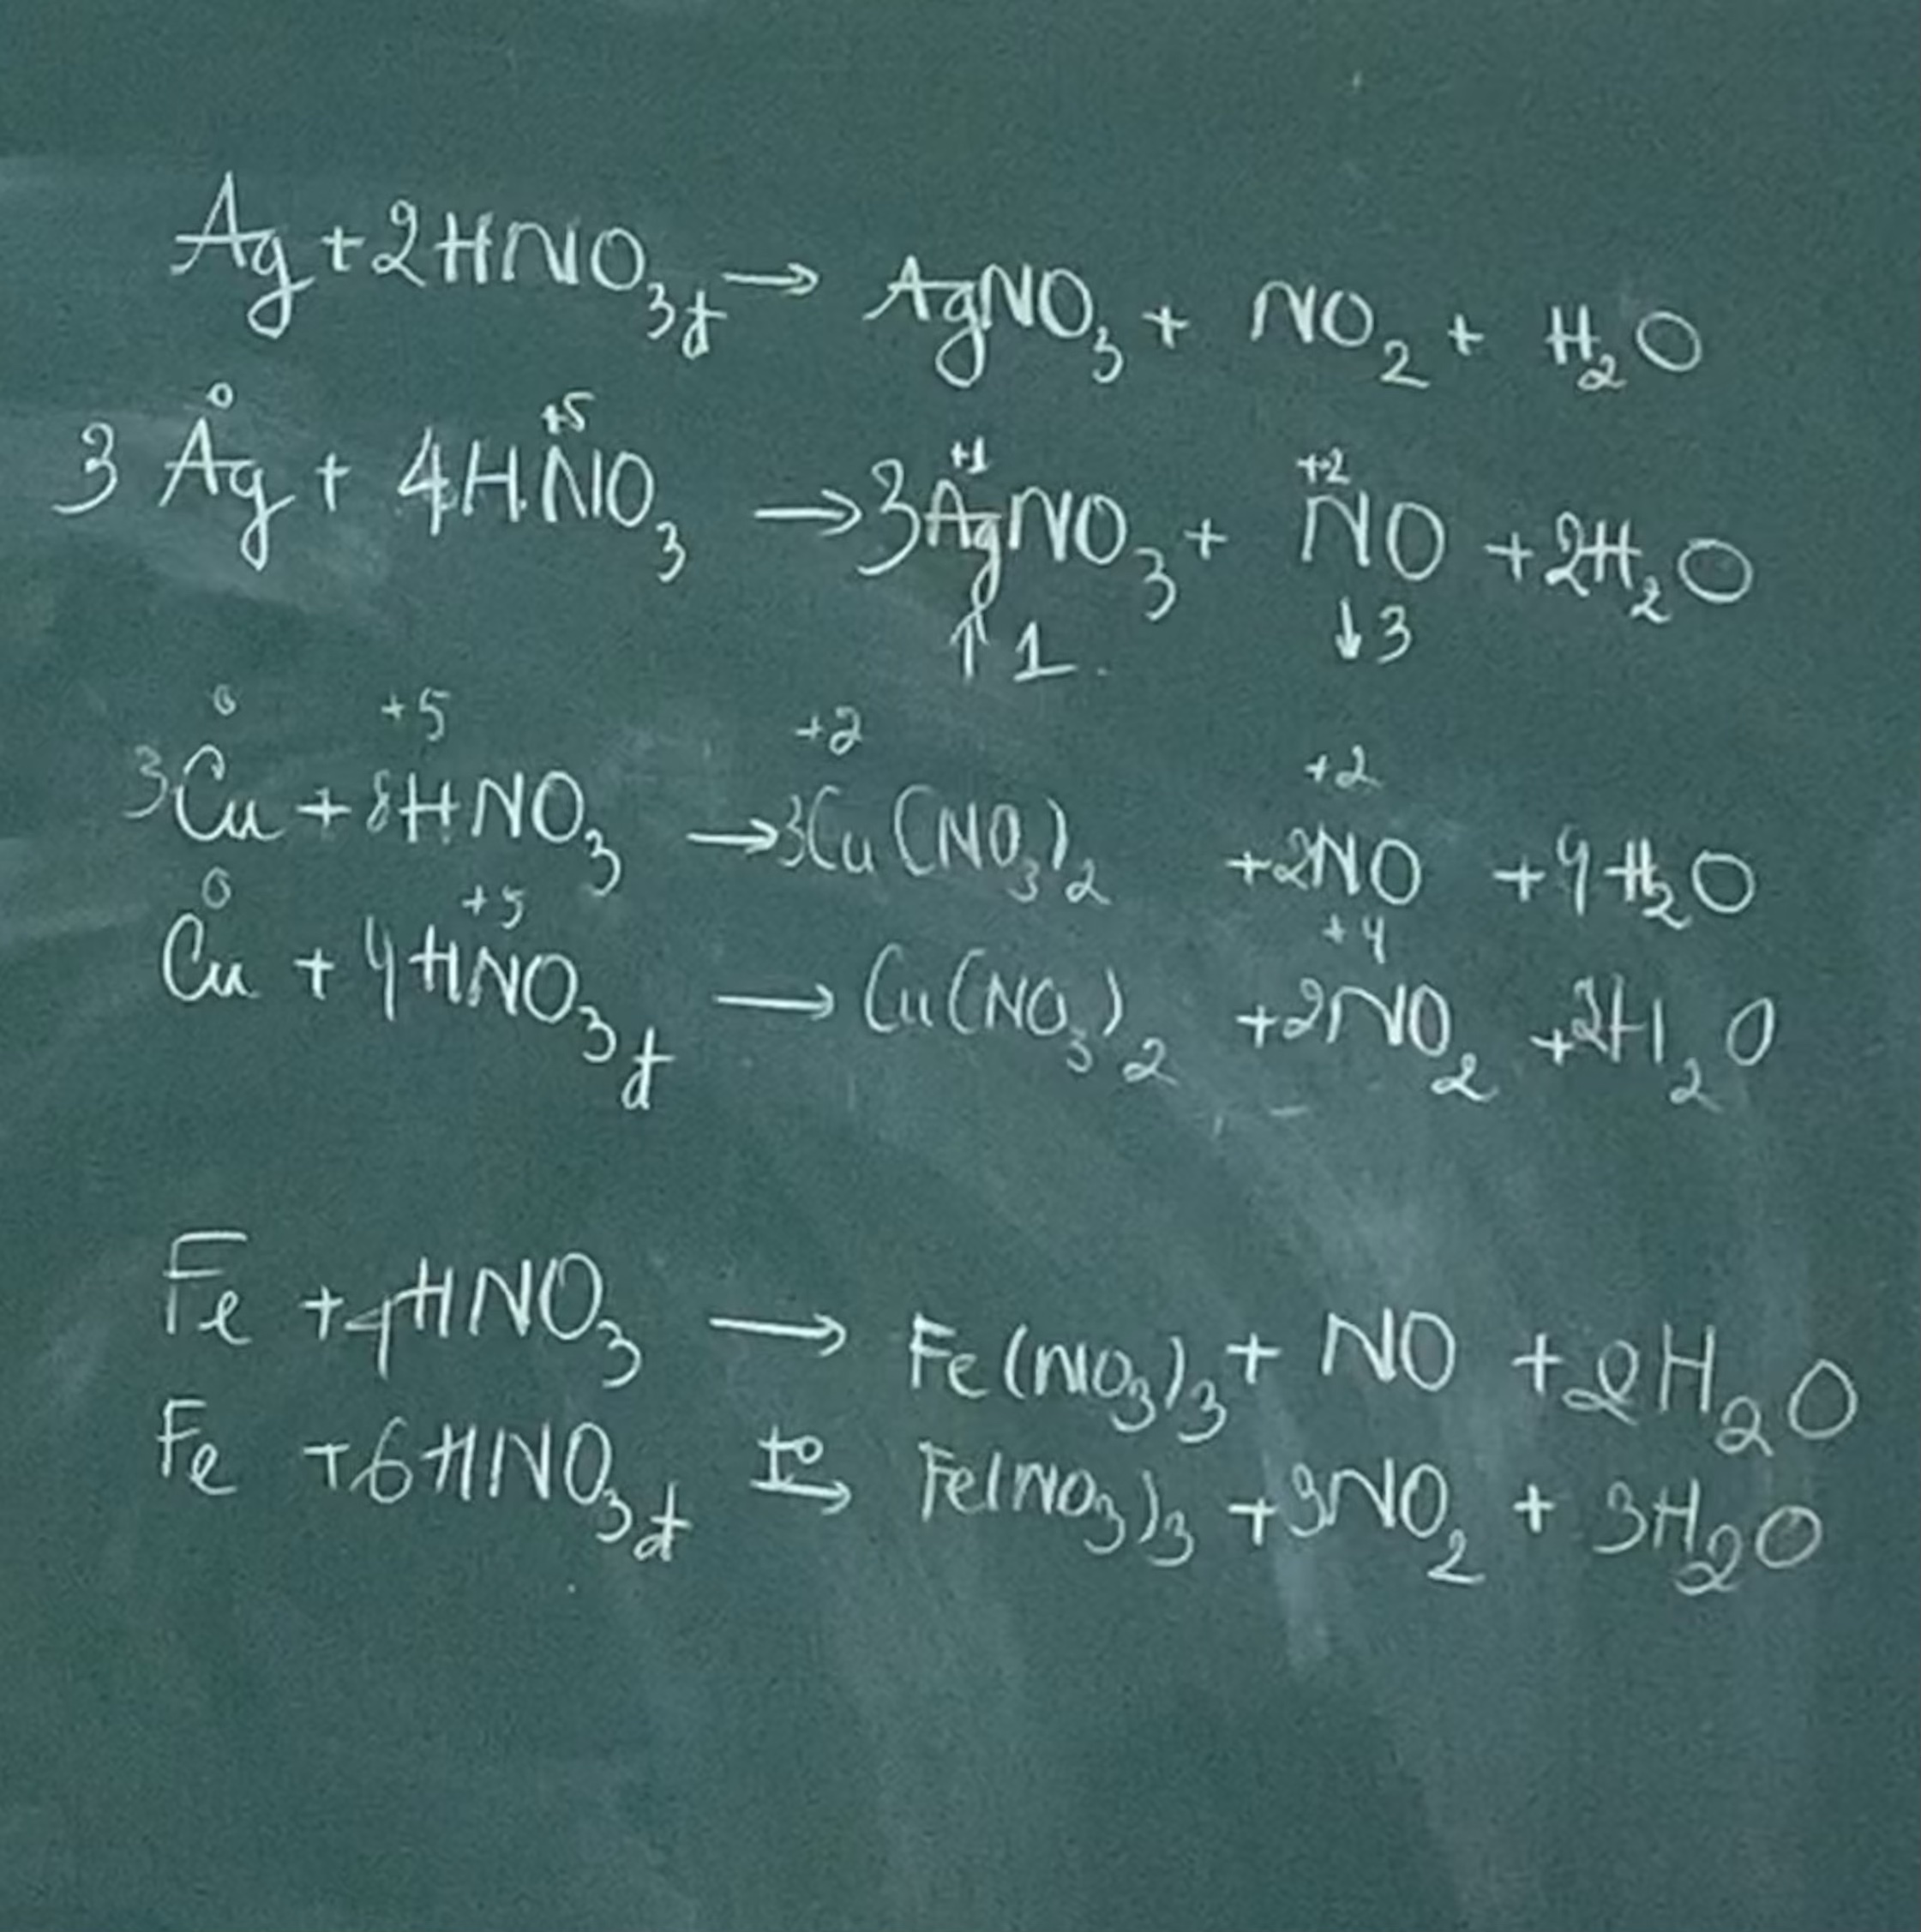 Ag + 2HNO₃đ → AgNO₃ + NO₂ + H₂O
0 +5 +1 +2
3 Ag + 4HNO₃ → 3AgNO₃ + NO + 2H₂O
↑1 ↓3
0 +5 +2 +2
3Cu + 8HNO₃ → 3Cu(NO₃)₂ + 2NO + 4H₂O
0 +5 +4
Cu + 4HNO₃đ → Cu(NO₃)₂ + 2NO₂ + 2H₂O
Fe + 4HNO₃ → Fe(NO₃)₃ + NO + 2H₂O
Fe + 6HNO₃đ t⁰→ Fe(NO₃)₃ + 3NO₂ + 3H₂O